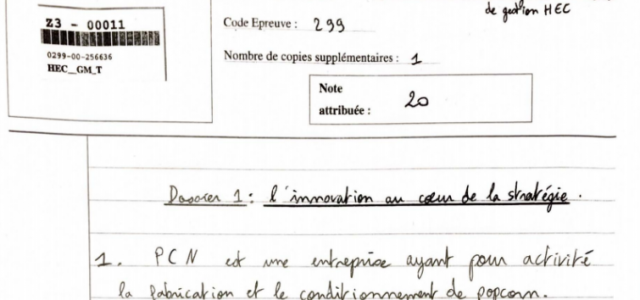 Z3 - 00011
0299-00-256636
HEC__GM_T
de gestion HEC
Code Epreuve : 299
Nombre de copies supplémentaires : 1
Note
attribuée : 20
Dossier 1 : l'innovation au cœur de la stratégie.
1. PCN est une entreprise ayant pour activité
la fabrication et le conditionnement de popcorn.